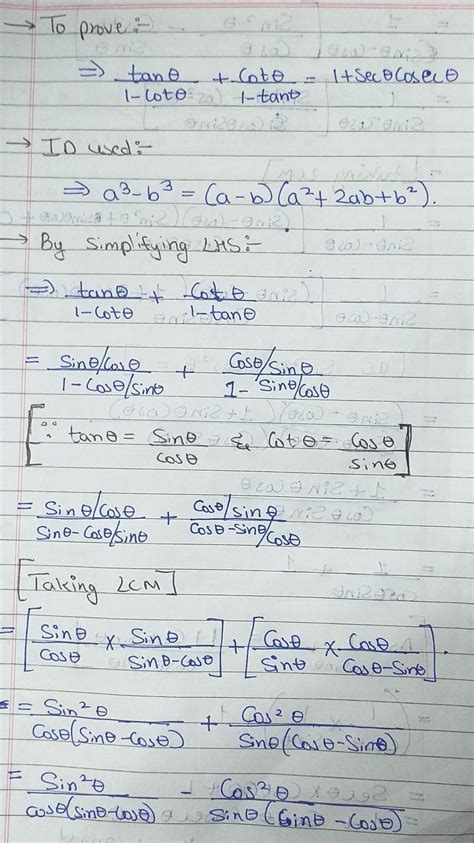 → To prove:-
⇒ tanθ/1-Cotθ + Cotθ/1-tanθ = 1+SecθCosecθ
→ ID used:-
⇒ a³-b³ = (a-b)(a²+2ab+b²).
→ By Simplifying LHS:-
⇒ tanθ/1-Cotθ + Cotθ/1-tanθ
= Sinθ/Cosθ/1-Cosθ/Sinθ + Cosθ/Sinθ/1-Sinθ/Cosθ
[∵ tanθ = Sinθ/Cosθ & Cotθ = Cosθ/Sinθ]
= Sinθ/Cosθ/Sinθ-Cosθ/Sinθ + Cosθ/Sinθ/Cosθ-Sinθ/Cosθ
[Taking LCM]
= [Sinθ/Cosθ × Sinθ/Sinθ-Cosθ] + [Cosθ/Sinθ × Cosθ/Cosθ-Sinθ].
= = Sin²θ/Cosθ(Sinθ-Cosθ) + Cos²θ/Sinθ(Cosθ-Sinθ)
= Sin²θ/Cosθ(Sinθ-Cosθ) - Cos²θ/Sinθ(Sinθ-Cosθ)